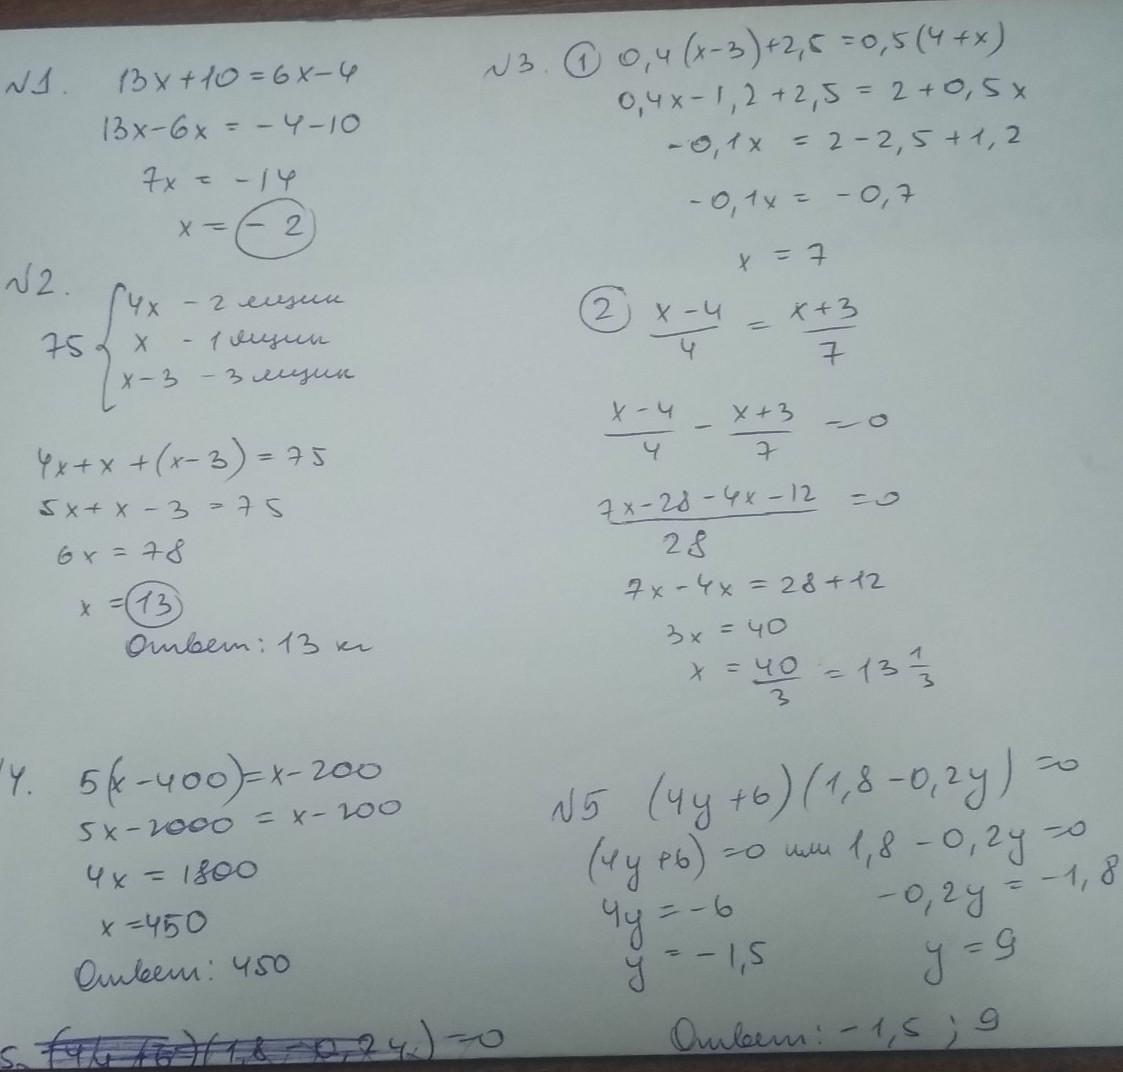 №1. 13x+10=6x-4
13x-6x = -4-10
7x = -14
x = -2
№2.
75 { 4x - 2 ящик
x - 1 ящик
x-3 - 3 ящик
4x+x+(x-3)=75
5x+x-3=75
6x=78
x=13
Ответ: 13 кг
№3. ① 0,4(x-3)+2,5=0,5(4+x)
0,4x-1,2+2,5=2+0,5x
-0,1x = 2-2,5+1,2
-0,1x = -0,7
x = 7
② (x-4)/4 = (x+3)/7
(x-4)/4 - (x+3)/7 = 0
(7x-28-4x-12)/28 = 0
7x-4x=28+12
3x=40
x = 40/3 = 13 1/3
4. 5(x-400)=x-200
5x-2000=x-200
4x=1800
x=450
Ответ: 450
5. (4y+6)(1,8-0,2y)=0
№5 (4y+6)(1,8-0,2y)=0
(4y+6)=0 или 1,8-0,2y=0
4y=-6 -0,2y=-1,8
y=-1,5 y=9
Ответ: -1,5; 9